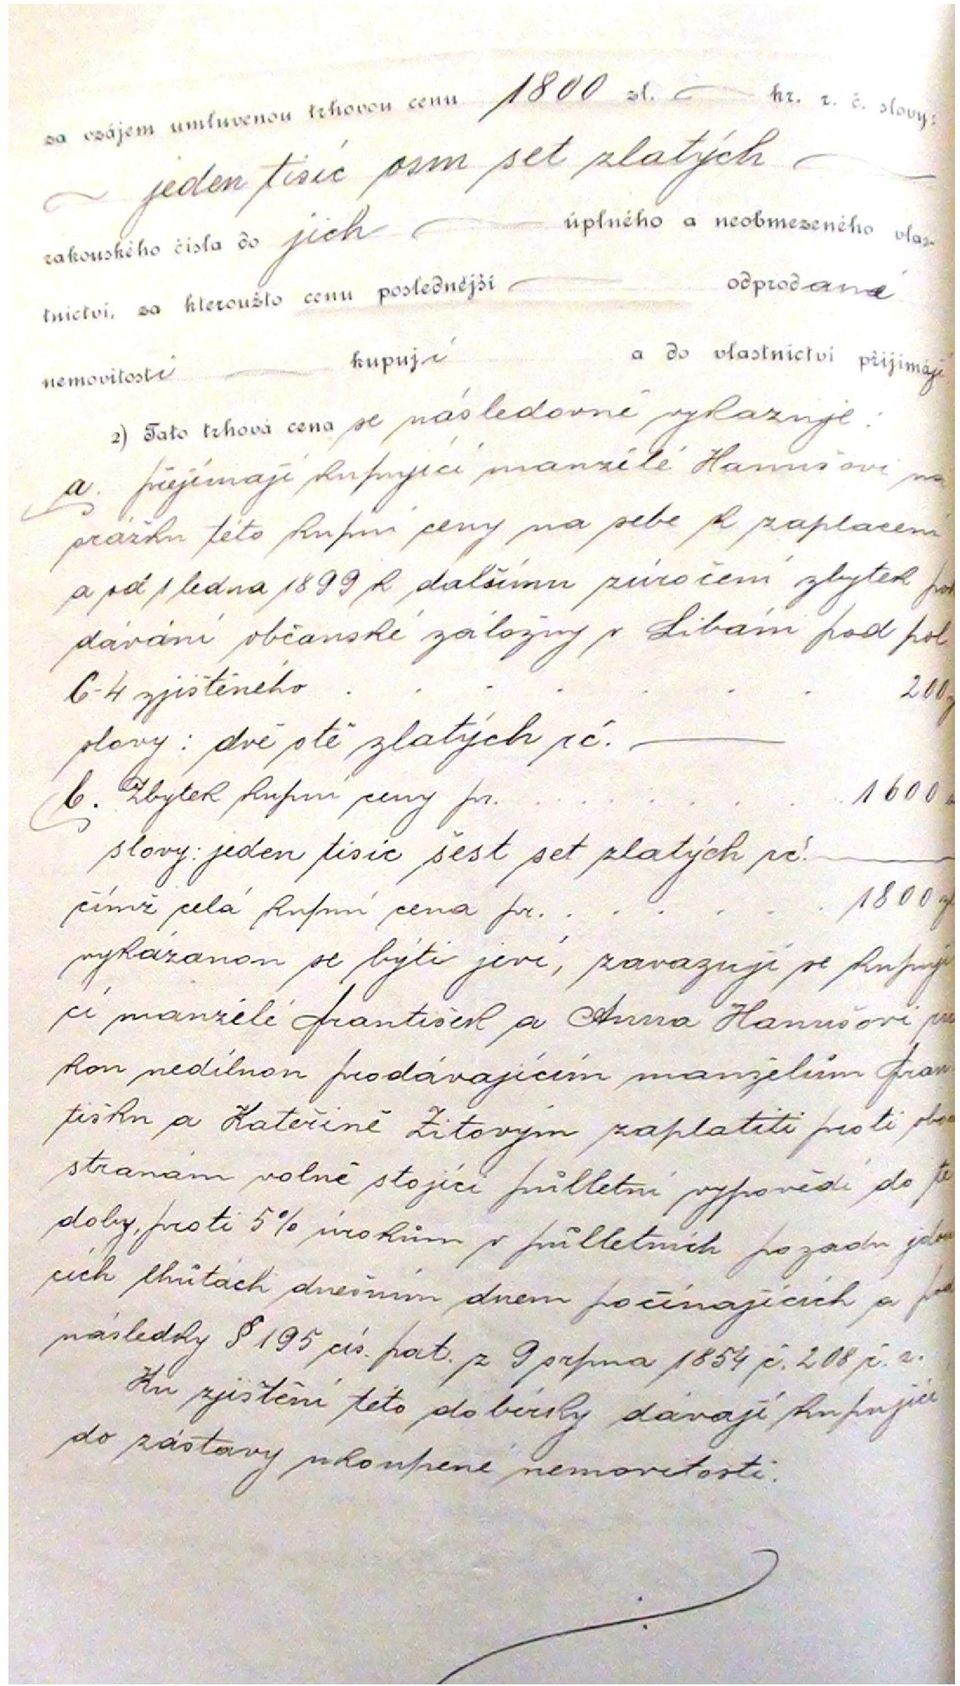 za vzájem umluvenou trhovou cenu 1800 zl. kr. r. č. slovy:
jeden tisíc osm set zlatých
rakouského čísla do jich úplného a neobmezeného vlas-
tnictví, za kteroužto cenu poslednější odprodané
nemovitosti kupují a do vlastnictví přijímají
2) Tato trhová cena se následovně vykazuje:
a. přejímají kupující manželé Hanušovi na
srážku této kupní ceny na sebe k zaplacení
a od 1 ledna 1899 k dalšímu zúročení zbytek poh
dávání občanské záložny v Libáni pod pol
C-4 zjištěného . . . . . . . 200 z
slovy: dvě stě zlatých rč.
b. Zbytek kupní ceny pr. . . . . . . . . 1600
slovy: jeden tisíc šest set zlatých rč.
čímž celá kupní cena pr. . . . . . . 1800 zl
vykázanou se býti jeví, zavazují se kupují
cí manželé František a Anna Hanušovi ru
kou nedílnou prodávajícím manželům Fran
tišku a Kateřině Žitovým zaplatiti proti obou
stranám volně stojící půlletní výpovědi do té
doby, proti 5% úrokům v půlletních pozadu jdou
cích lhůtách dnešním dnem počínajících a pod
následky § 195 cís. pat. z 9 srpna 1854 č. 208 ř. z.
Ku zjištění této dobírky dávají kupující
do zástavy ukoupené nemovitosti.